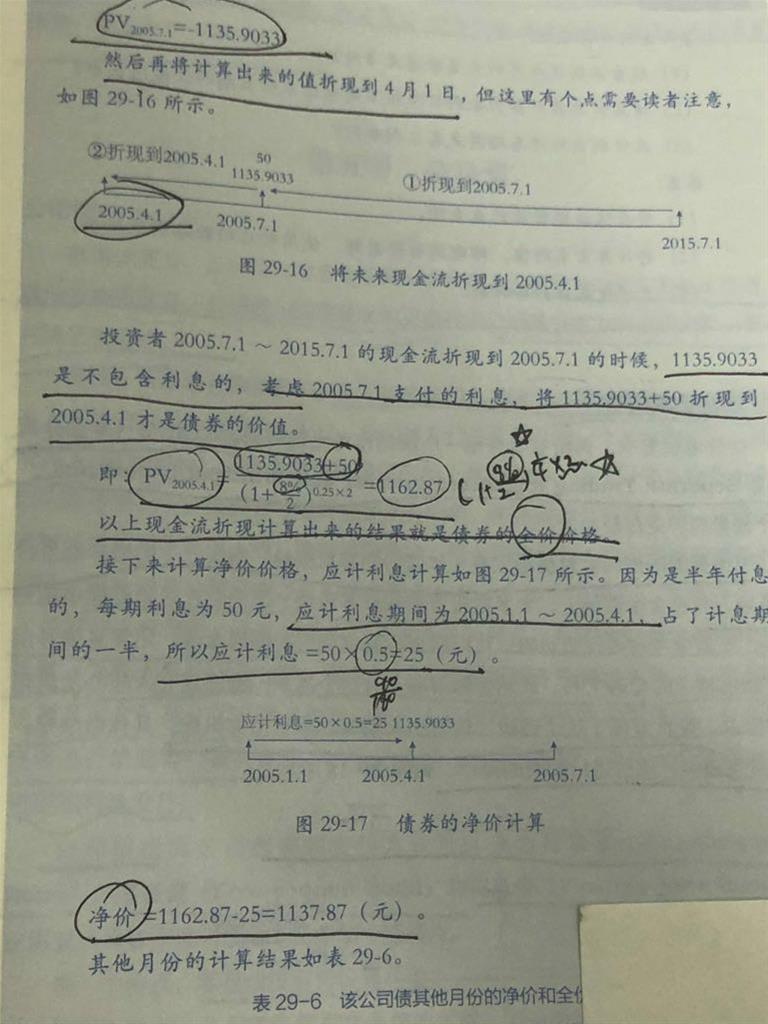 PV2005.7.1=-1135.9033
然后再将计算出来的值折现到4月1日，但这里有个点需要读者注意，
如图29-16所示。
②折现到2005.4.1
50
1135.9033
①折现到2005.7.1
2005.4.1
2005.7.1
2015.7.1
图29-16 将未来现金流折现到2005.4.1
投资者2005.7.1～2015.7.1的现金流折现到2005.7.1的时候，1135.9033
是不包含利息的，考虑2005.7.1支付的利息，将1135.9033+50折现到
2005.4.1才是债券的价值。
即：PV2005.4.1=(1135.9033+50)/(1+8%/2)^0.25×2=1162.87
以上现金流折现计算出来的结果就是债券的全价价格。
接下来计算净价价格，应计利息计算如图29-17所示。因为是半年付息
的，每期利息为50元，应计利息期间为2005.1.1～2005.4.1，占了计息期
间的一半，所以应计利息=50×0.5=25（元）。
90
180
应计利息=50×0.5=25 1135.9033
2005.1.1
2005.4.1
2005.7.1
图29-17 债券的净价计算
净价=1162.87-25=1137.87（元）。
其他月份的计算结果如表29-6。
表29-6 该公司债其他月份的净价和全价